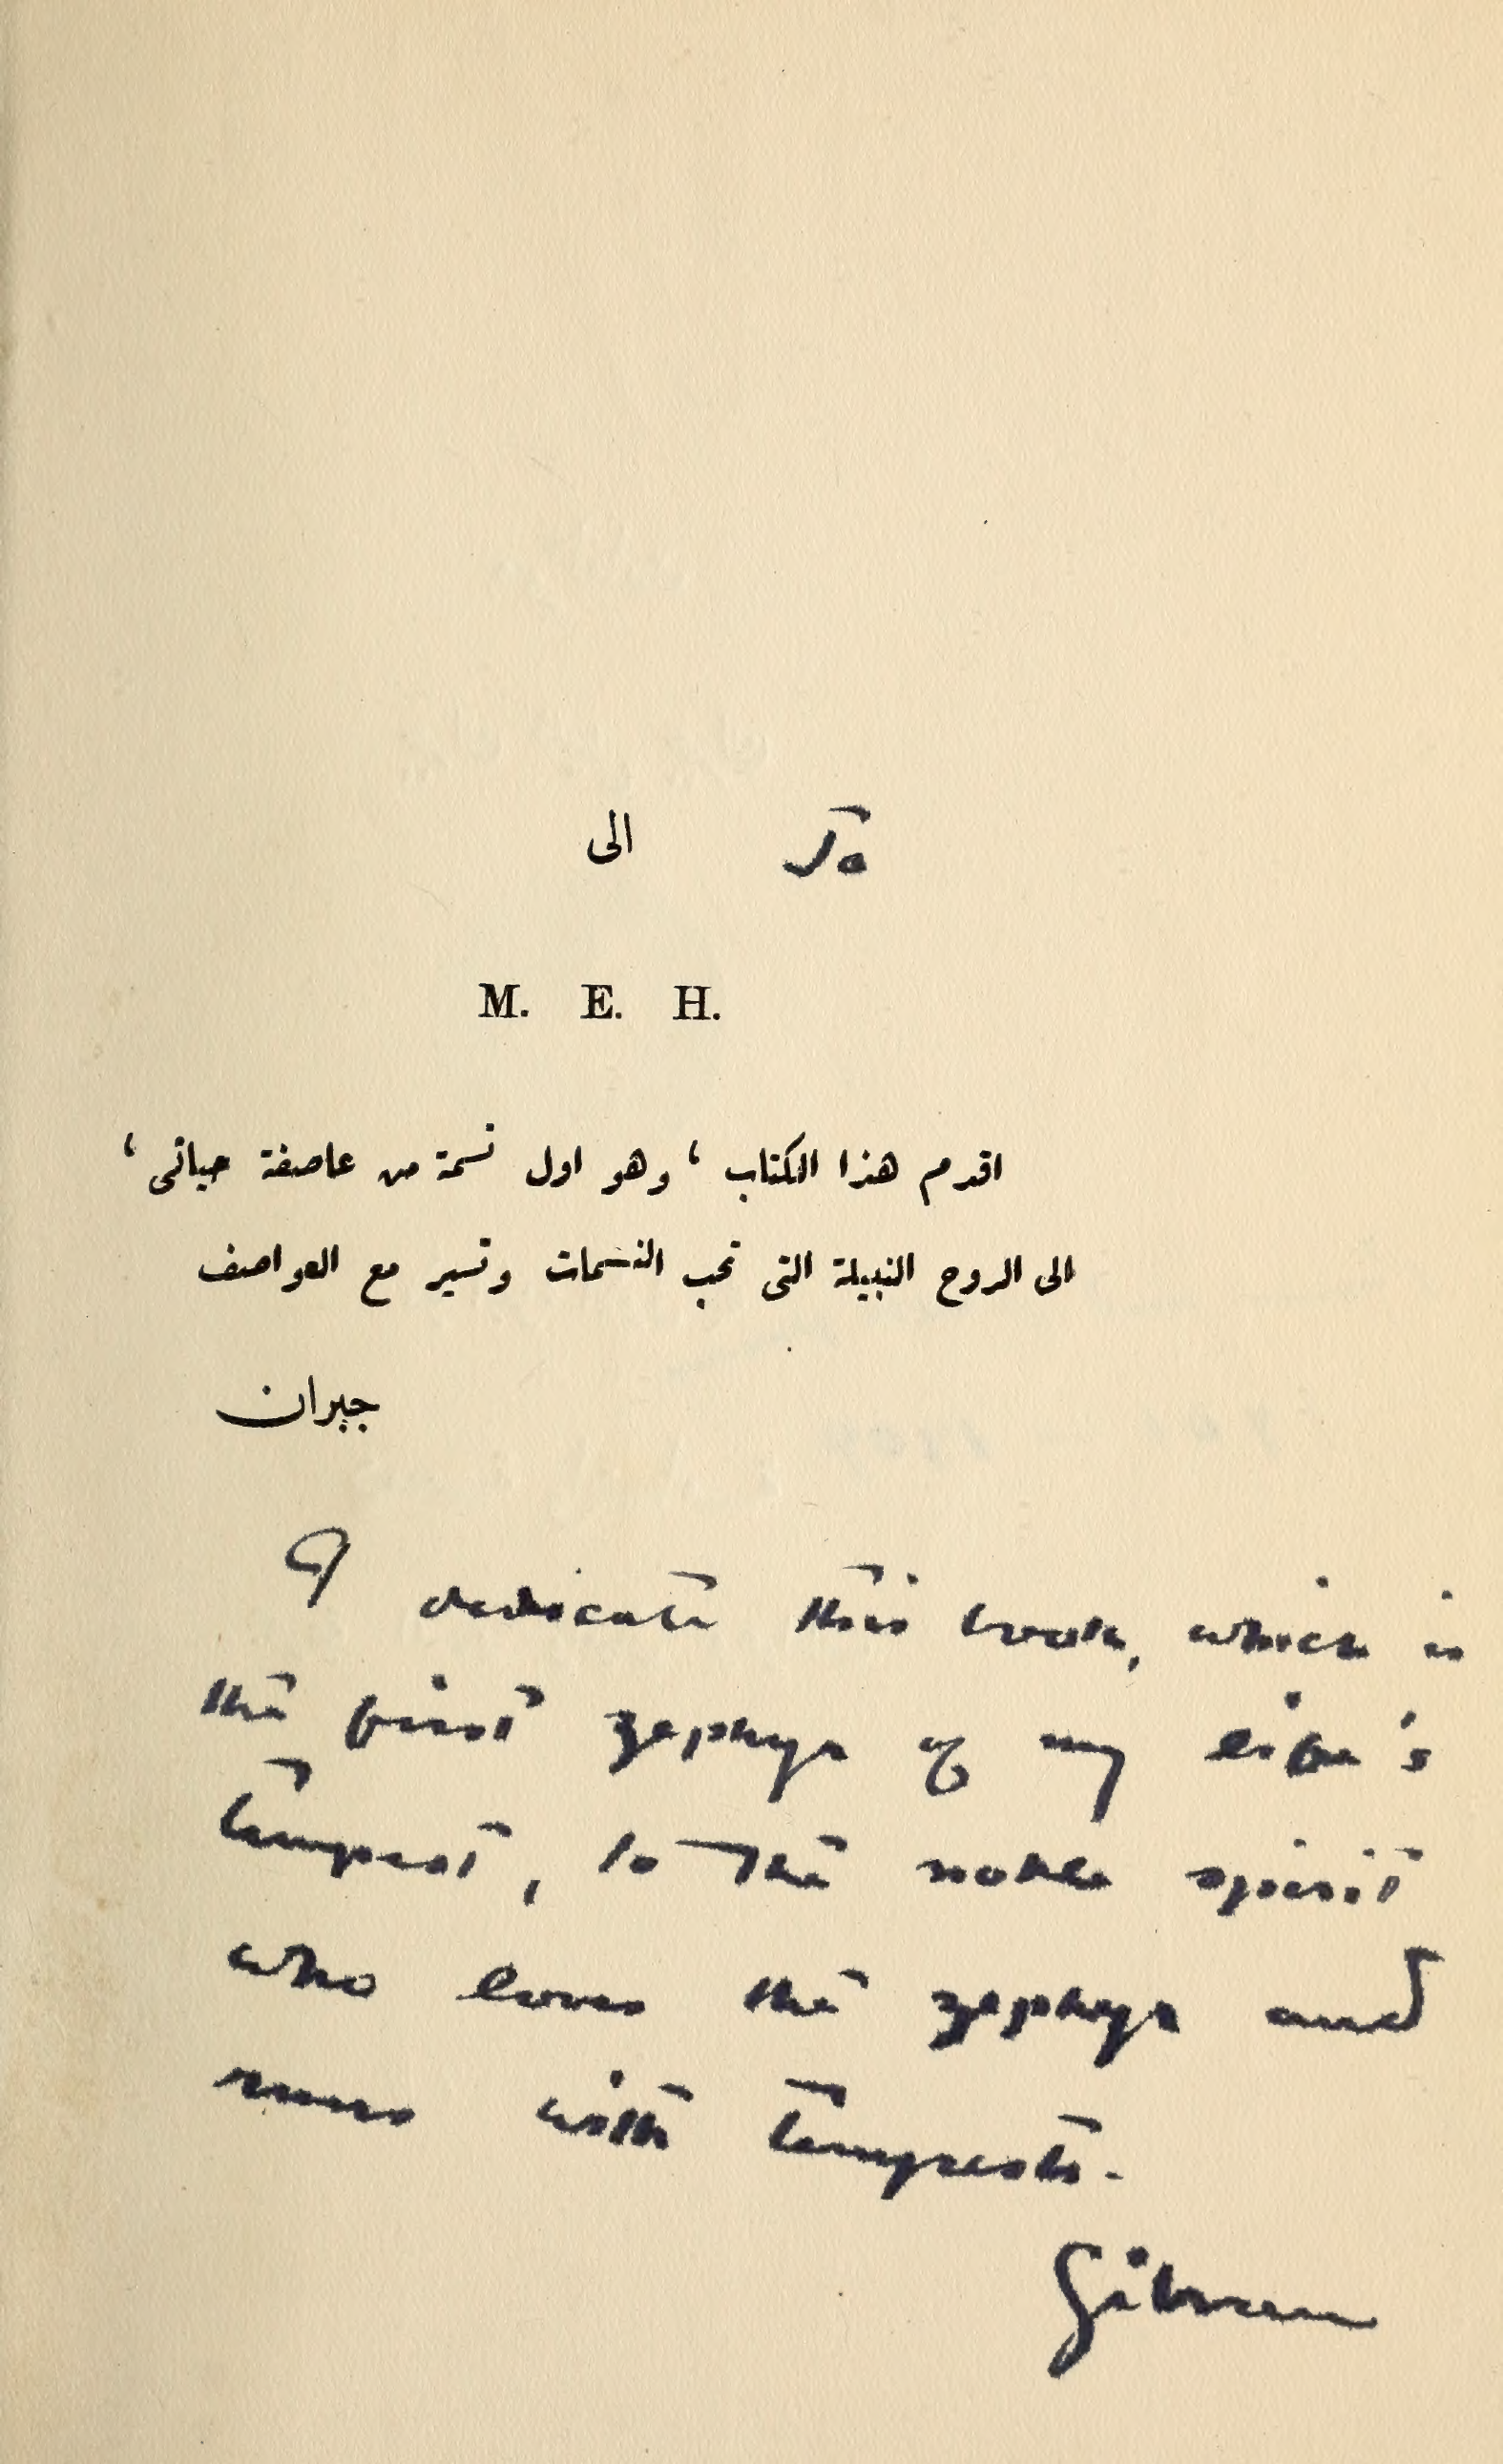 الى To
M. E. H.
اقدم هذا الكتاب ، وهو اول نسمة من عاصفة حياتى ،
الى الروح النبيلة التى تحب النسمات وتسير مع العواصف
جبران
I dedicate this book, which is
the first zephyr of my life's
tempest, to the noble spirit
who loves the zephyr and
runs with tempests.
Gibran